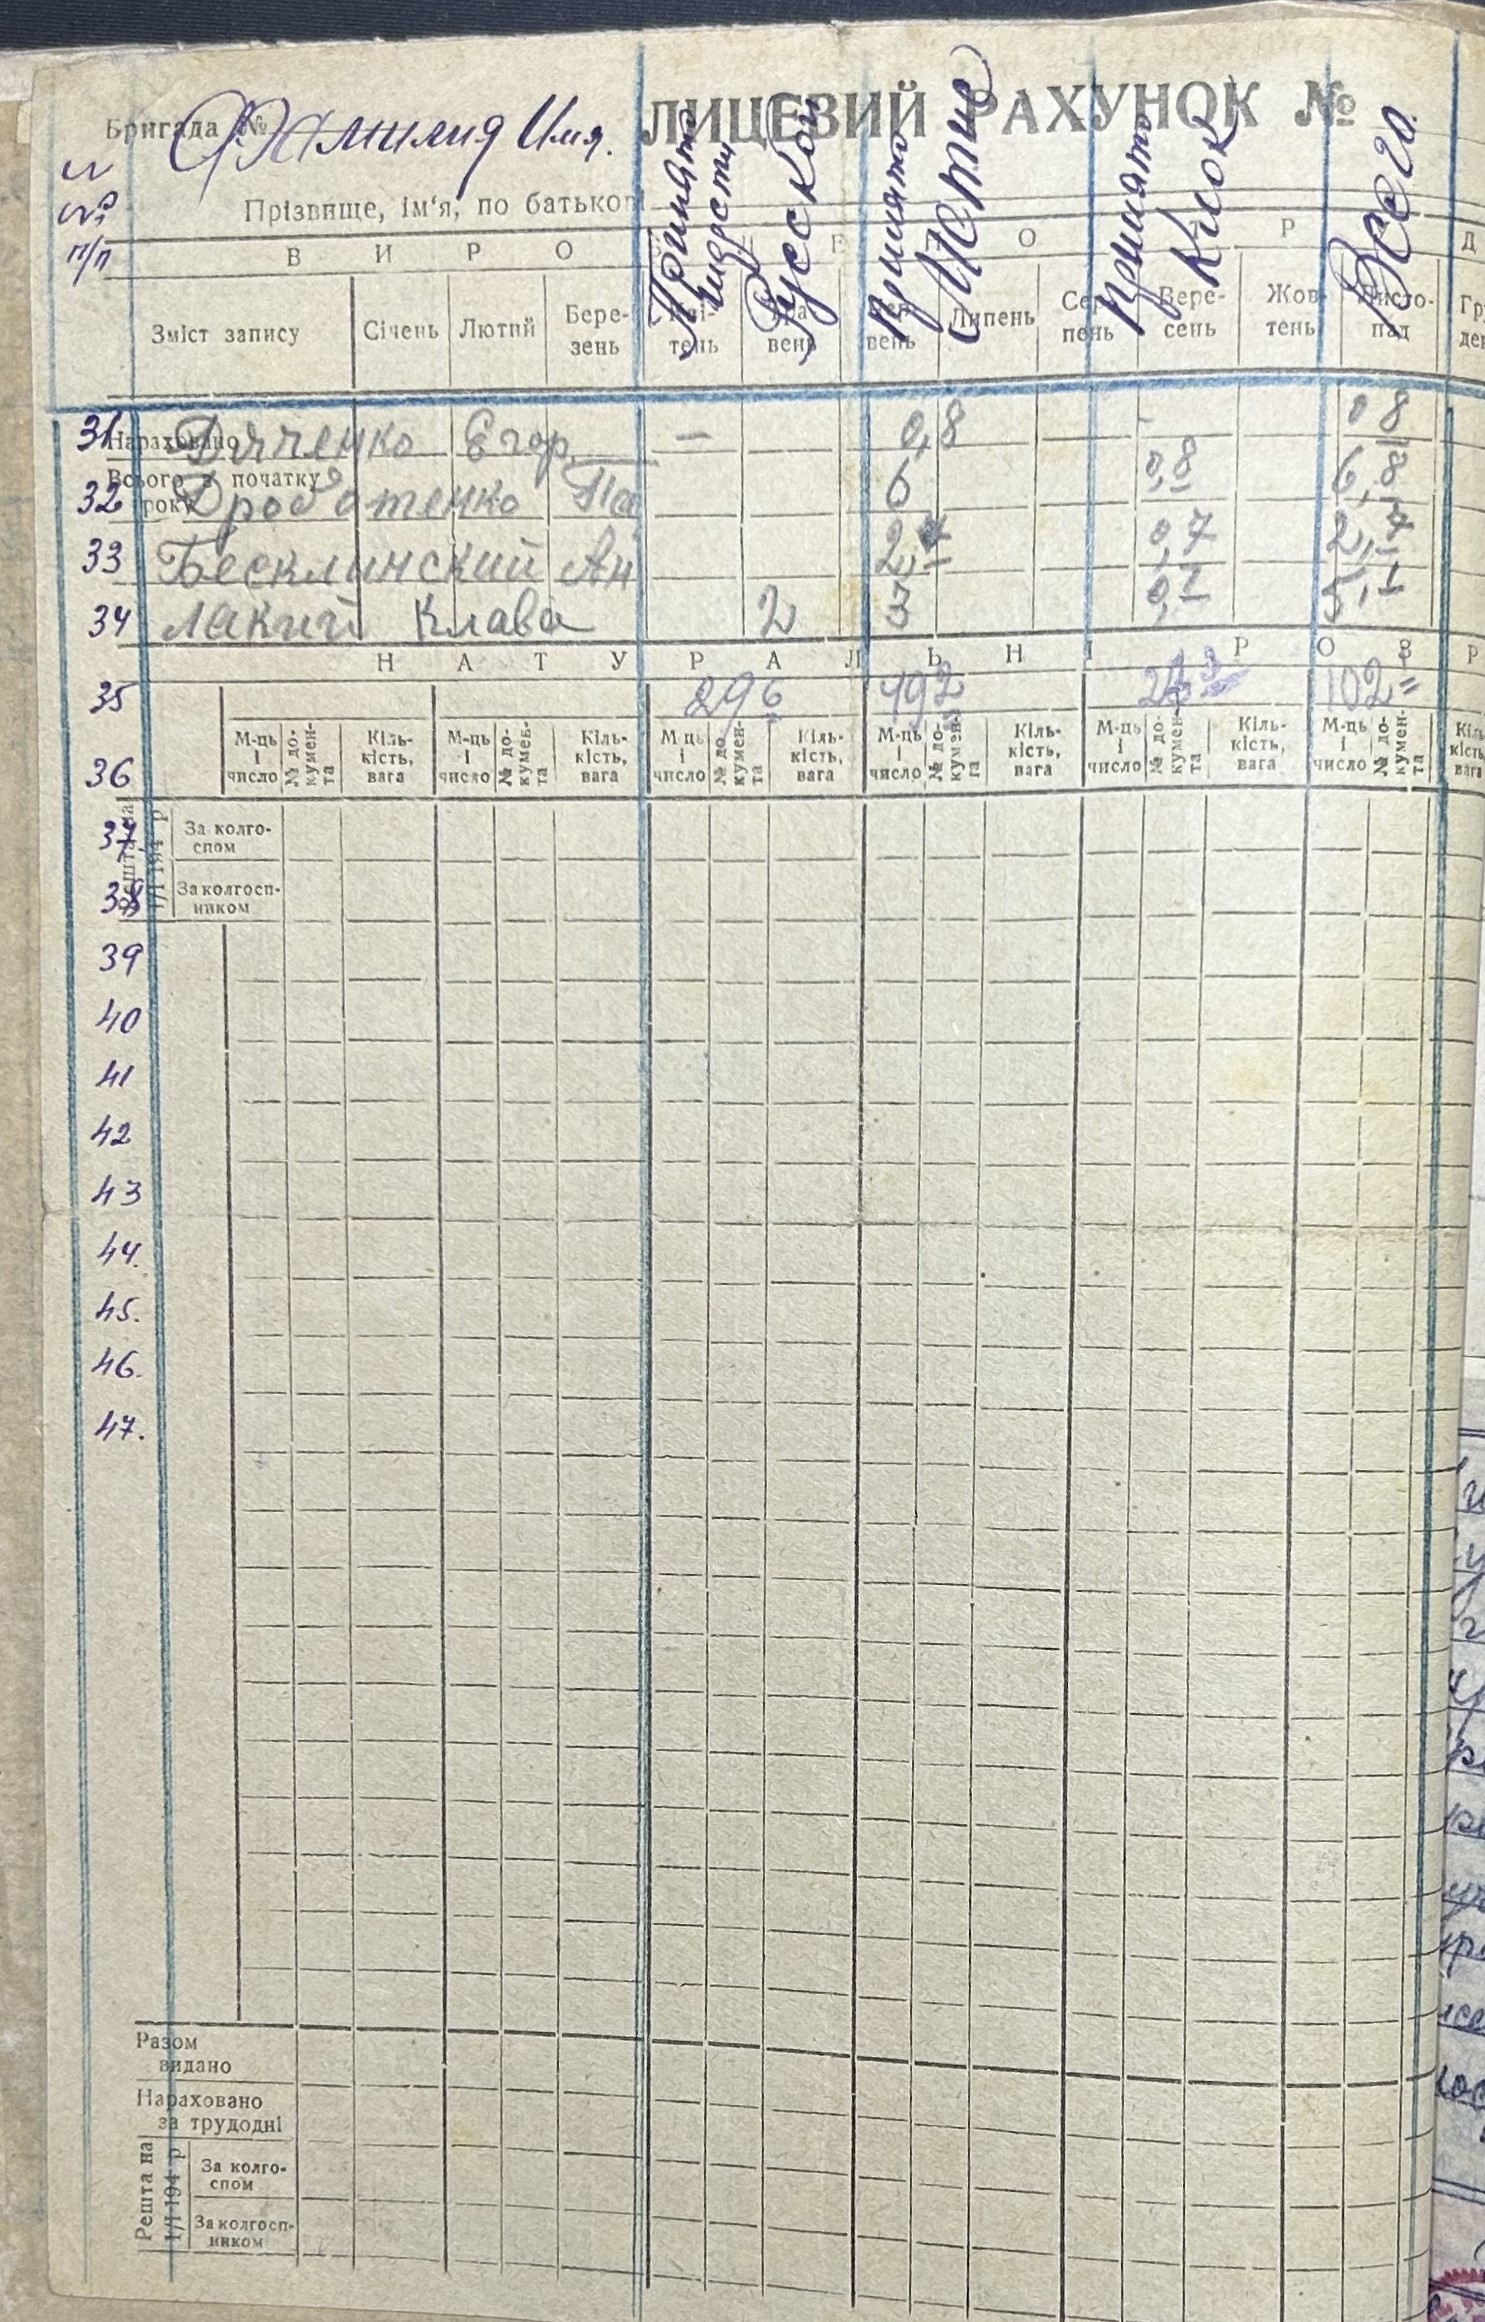 Бригада № ЛИЦЕВИЙ РАХУНОК №
Фамилия Имя.
№№
п/п
Прізвище, ім'я, по батькові
Принято шерсти Русской
принято Метис
принято Клок
Всего.
В И Р О Е О Р Д
Зміст запису Січень Лютий Бере-зень Кві-тень Тра-вень Чер-вень Липень Сер-пень Вере-сень Жов-тень Листо-пад Гру-ден
Нараховано
31 Дяченко Егор. — 0,8 - 0 8
Всього з початку року
32 Дроботенко Па 6 0,8 6,8
33 Бесклинский Ан 2, 0,7 2,7
34 Лакий Клава 2 3 0,1 5,1
Н А Т У Р А Л Ь Н І Р О З Р
35 296 492 102
36 М-ць і число № до-кумен-та Кіль-кість, вага М-ць і число № до-кумен-та Кіль-кість, вага М-ць і число № до-кумен-та Кіль-кість, вага М-ць і число № до-кумен-та Кіль-кість, вага М-ць і число № до-кумен-та Кіль-кість, вага М-ць і число № до-кумен-та Кіль-кість, вага
Решта на 1/I 194 р
37 За колго-спом
38 За колгосп-ником
39
40
41
42
43
44.
45.
46.
47.
Разом видано
Нараховано за трудодні
Решта на 1/I 194 р
За колго-спом
За колгосп-ником